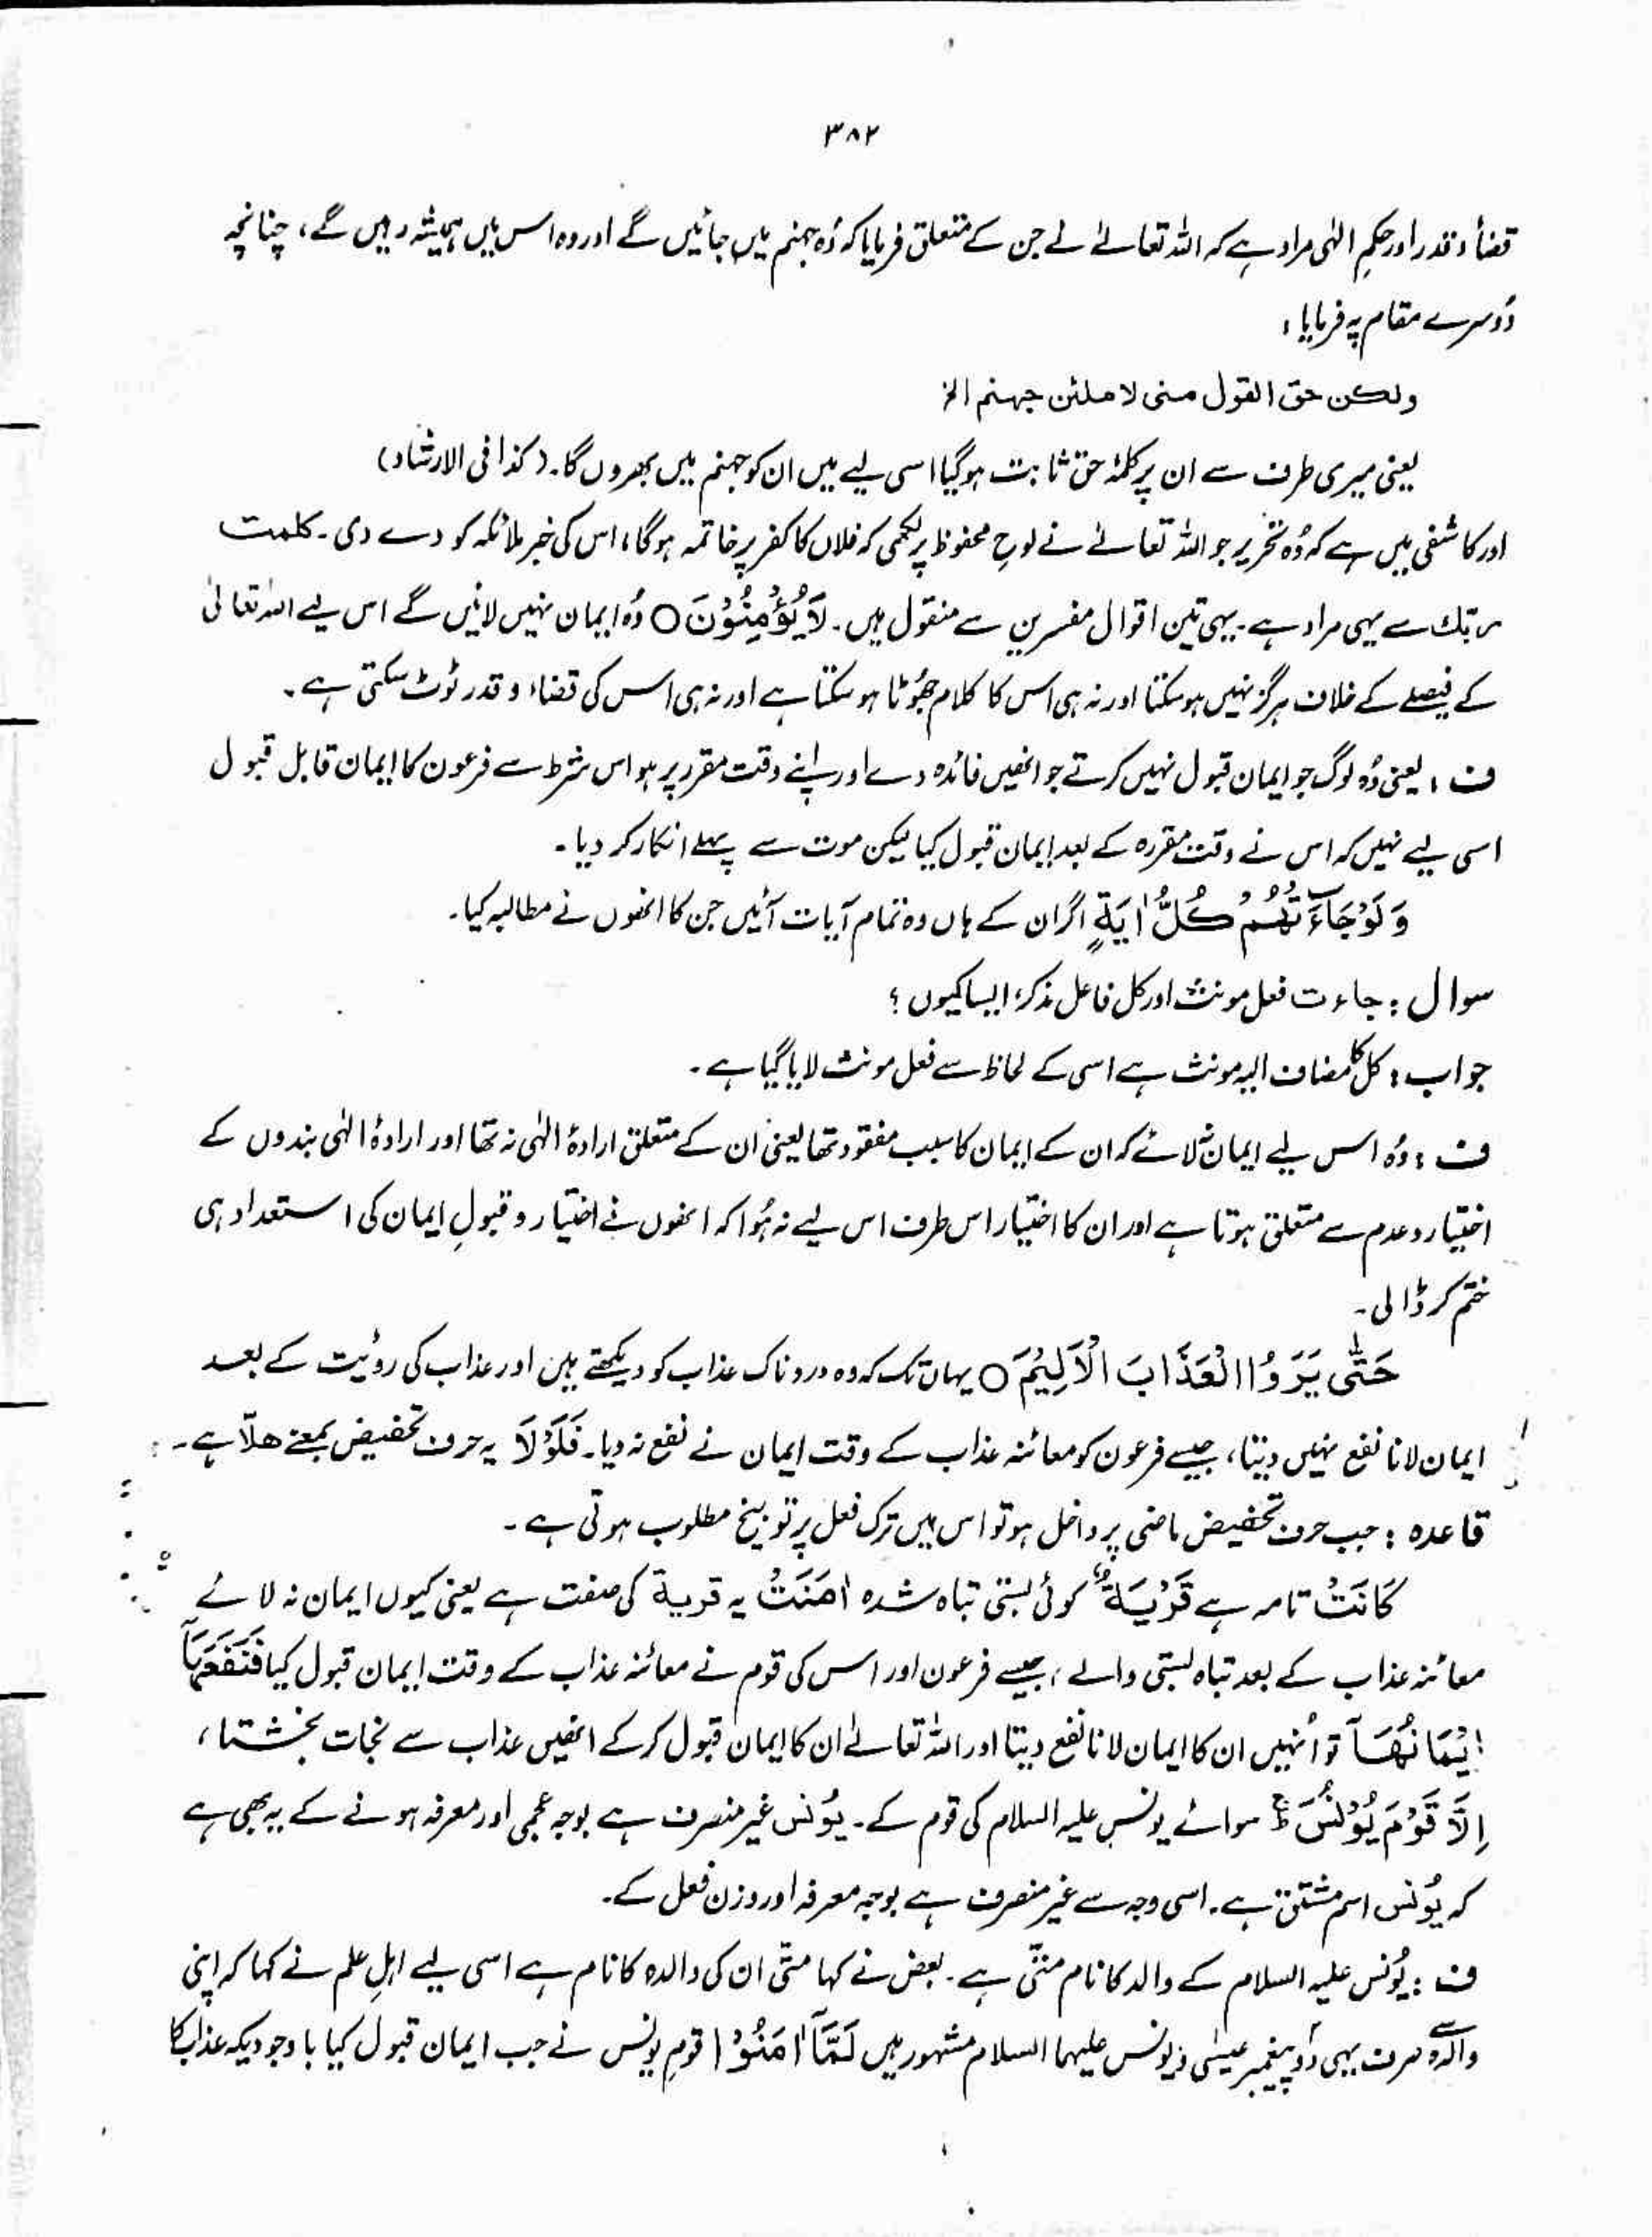 ۳۸۲
قضأ و قدر اور حکمِ الٰہی مراد ہے کہ اللہ تعالےٰ نے جن کے متعلق فرمایا کہ وُہ جہنم میں جائیں گے اور وہ اس میں ہمیشہ رہیں گے، چنانچہ
دُوسرے مقام پہ فرمایا :
ولکن حق القول منی لاملئن جہنم الخ
یعنی میری طرف سے ان پر کلمۂ حق ثابت ہو گیا اسی لیے میں ان کو جہنم میں بھروں گا۔ (کذا فی الارشاد)
اور کاشفی میں ہے کہ وُہ تحریر جو اللہ تعالےٰ نے لوحِ محفوظ پر لکھی کہ فلاں کا کفر پر خاتمہ ہو گا، اس کی خبر ملائکہ کو دے دی۔ کلمت
ربك سے یہی مراد ہے۔ یہی تین اقوال مفسرین سے منقول ہیں۔ لَا يُؤْمِنُوْنَ ○ وُہ ایمان نہیں لائیں گے اس لیے اللہ تعالیٰ
کے فیصلے کے خلاف ہرگز نہیں ہو سکتا اور نہ ہی اس کا کلام جھُوٹا ہو سکتا ہے اور نہ ہی اس کی قضاء و قدر ٹوٹ سکتی ہے۔
ف : یعنی وُہ لوگ جو ایمان قبول نہیں کرتے جو انھیں فائدہ دے اور اپنے وقت مقرر پر ہو اس شرط سے فرعون کا ایمان قابل قبول
اسی لیے نہیں کہ اس نے وقت مقررہ کے بعد ایمان قبول کیا لیکن موت سے پہلے انکار کر دیا۔
وَلَوْ جَآءَتْهُمْ كُلُّ اٰيَةٍ اگر ان کے ہاں وہ تمام آیات آئیں جن کا انھوں نے مطالبہ کیا۔
سوال : جاءت فعل مونث اور کل فاعل مذکر، ایسا کیوں ؟
جواب : کل کا مضاف الیہ مونث ہے اسی کے لحاظ سے فعل مونث لایا گیا ہے۔
ف : وُہ اس لیے ایمان نہ لائے کہ ان کے ایمان کا سبب مفقود تھا یعنی ان کے متعلق ارادۂ الٰہی نہ تھا اور ارادۂ الٰہی بندوں کے
اختیار و عدم سے متعلق ہوتا ہے اور ان کا اختیار اس طرف اس لیے نہ ہُوا کہ انھوں نے اختیار و قبولِ ایمان کی استعداد ہی
ختم کر ڈالی۔
حَتّٰى يَرَوُا الْعَذَابَ الْاَلِيْمَ ○ یہاں تک کہ وہ دردناک عذاب کو دیکھتے ہیں اور عذاب کی روئیت کے بعد
ایمان لانا نفع نہیں دیتا، جیسے فرعون کو معائنہ عذاب کے وقت ایمان نے نفع نہ دیا۔ فَلَوْلَا یہ حرف تحضیض بمعنے ھلّا ہے۔
قاعدہ : جب حرف تحضیض ماضی پر داخل ہو تو اس میں ترک فعل پر توبیخ مطلوب ہوتی ہے۔
كَانَتْ تامہ ہے قَرْيَةٌ کوئی بستی تباہ شدہ اٰمَنَتْ یہ قریۃ کی صفت ہے یعنی کیوں ایمان نہ لائے
معائنہ عذاب کے بعد تباہ بستی والے ، جیسے فرعون اور اس کی قوم نے معائنہ عذاب کے وقت ایمان قبول کیا فَنَفَعَهَآ
اِيْمَانُهَآ تو اُنہیں ان کا ایمان لانا نفع دیتا اور اللہ تعالےٰ ان کا ایمان قبول کر کے انھیں عذاب سے نجات بخشتا ،
اِلَّا قَوْمَ يُوْنُسَ ؕ سوائے یونس علیہ السلام کی قوم کے۔ یُونس غیر منصرف ہے بوجہ عجمی اور معرفہ ہونے کے یہ بھی ہے
کہ یُونس اسم مشتق ہے۔ اسی وجہ سے غیر منصرف ہے بوجہ معرفہ اور وزن فعل کے۔
ف : یُونس علیہ السلام کے والد کا نام متّٰی ہے۔ بعض نے کہا متّٰی ان کی والدہ کا نام ہے اسی لیے اہلِ علم نے کہا کہ اپنی
والدہ سے صرف یہی دُو پیغمبر عیسٰی و یونس علیہما السلام مشہور ہیں لَمَّآ اٰمَنُوْا قومِ یونس نے جب ایمان قبول کیا باوجودیکہ عذاب کا